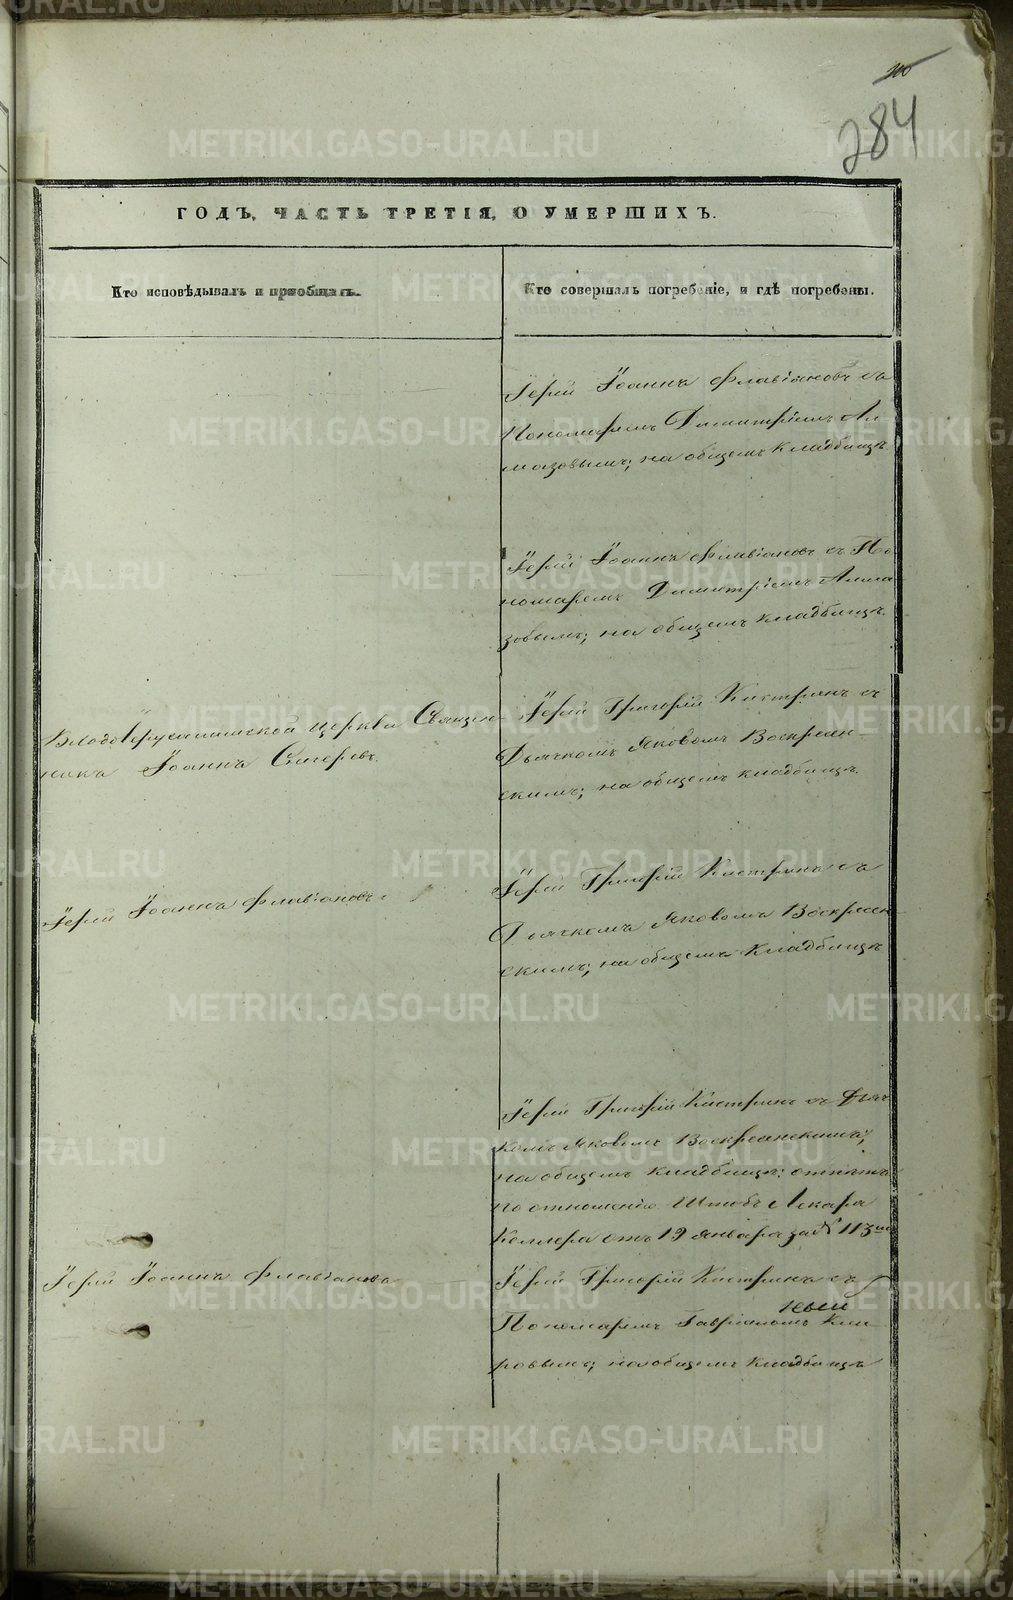 200
284
ГОДЪ, ЧАСТЬ ТРЕТІЯ, О УМЕРШИХЪ.
Кто исповѣдывалъ и пріобщалъ.
Кто совершалъ погребеніе, и гдѣ погребены.
Іерей Іоаннъ Флавіановъ съ
Пономаремъ Димитріемъ Ал-
мазовымъ; на общемъ кладбищѣ.
Іерей Іоаннъ Флавіановъ съ По-
номаремъ Димитріемъ Алма-
зовымъ; на общемъ кладбищѣ.
Входоіерусалимской церкви Священ-
никъ Іоаннъ
Іерей Григорій Кастринъ съ
Дьячкомъ Яковомъ Воскресен-
скимъ; на общемъ кладбищѣ.
Іерей Іоаннъ Флавіановъ.
Іерей Григорій Кастринъ съ
Дьячкомъ Яковомъ Воскресен-
скимъ; на общемъ кладбищѣ
Іерей Григорій Кастринъ съ Дьяч-
комъ Яковомъ Воскресенскимъ;
на общемъ кладбищѣ: отпѣтъ
по отношенію Штабъ Лекаря
Келлера отъ 19 января за № 113мъ
Іерей Іоаннъ Флавіановъ
Іерей Григорій Кастринъ съ
Пономаремъ Гавріиломъ
ровымъ; на общемъ кладбищѣ
METRIKI.GASO-URAL.RU